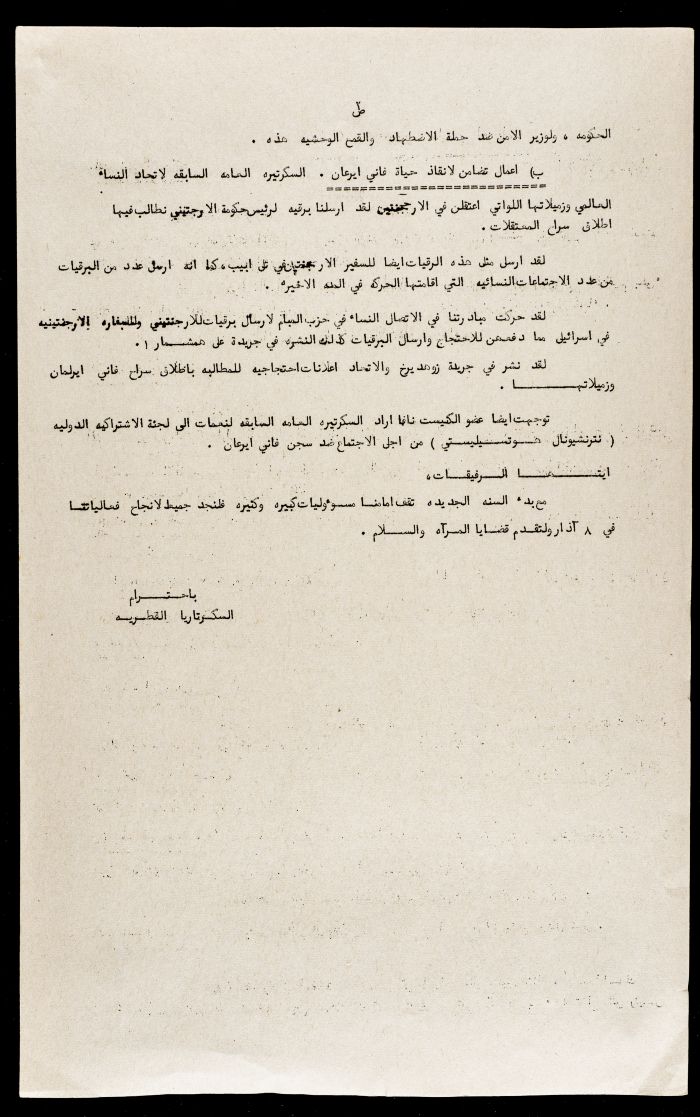 ط
الحكومه ، ولوزير الامن ضد حملة الاضطهاد والقمع الوحشيه هذه .
ب) اعمال تضامن لانقاذ حياة فاني ايرعان . السكرتيره العامه السابقه لاتحاد النساء
العالمي وزميلاتها اللواتي اعتقلن في الارجنتين لقد ارسلنا برقيه لرئيس حكومة الارجنتيني نطالب فيها
اطلاق سراح المعتقلات .
لقد ارسل مثل هذه الرقيات ايضا للسفير الارجنتين في تل ابيب ، كما انه ارسل عدد من البرقيات
من عدد الاجتماعات النسائيه التي اقامتها الحركه في المده الاخيره .
لقد حركت مبادرتنا في الاتصال النساء في حزب المبام لارسال برقيات للارجنتيني وللسفاره الارجنتينيه
في اسرائيل مما دفعهن للاحتجاج وارسال البرقيات كذلك النشره في جريدة على همشمار ١ .
لقد نشر في جريدة زوهديرخ والاتحاد اعلانات احتجاجيه للمطالبه باطلاق سراح فاني ايرلمان
وزميلاتهـــا .
توجهت ايضا عضو الكنيست نافا اراد السكرتيره العامه السابقه لنعمات الى لجنة الاشتراكيه الدوليه
( نترنشيونال هوتسيليستي ) من اجل الاجتماع ضد سجن فاني ايرعان .
ايتهـا الـرفيقات ،
مع بدء السنه الجديده تقف امامنا مسؤوليات كبيره وكثيره فلنجد جميعا لانجاح فعالياتنا
في ٨ آذار ولتقدم قضايا المرآه والســلام .
باحتــرام
السكرتاريا القطريــه